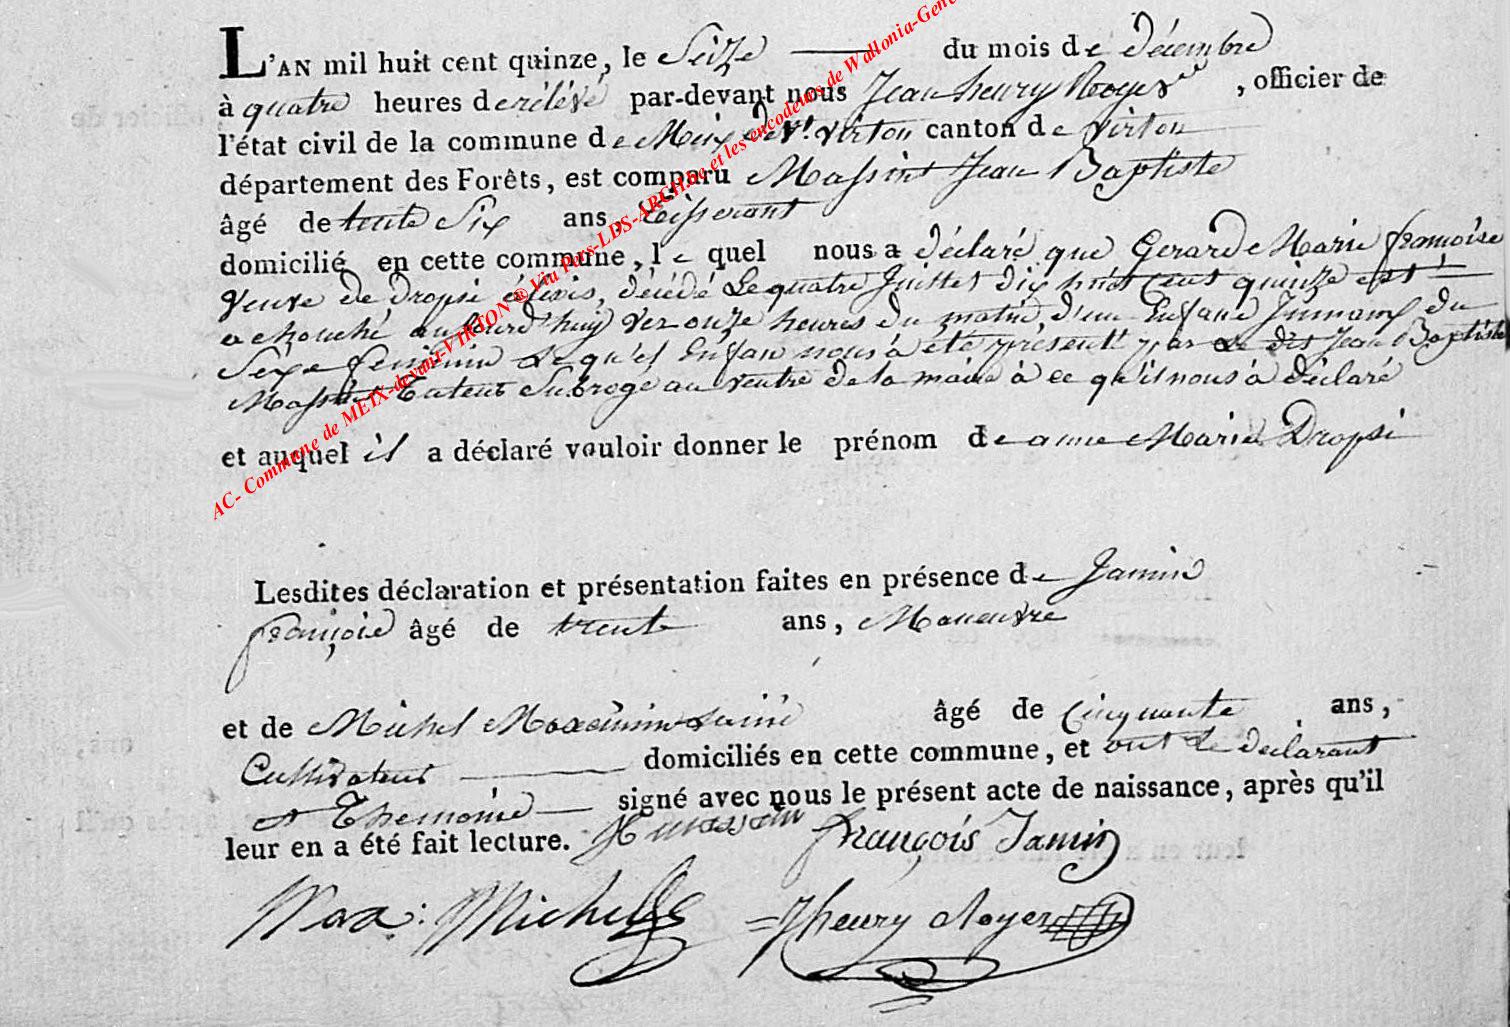 L'AN mil huit cent quinze, le Seize du mois de décembre
à quatre heures de rélévé par-devant nous Jean henry Royer, officier de
l'état civil de la commune de Meix devt. virton canton de virton
département des Forêts, est comparu Massint Jean Baptiste
âgé de trente Six ans, tisserant
domicilié en cette commune, le quel nous a déclaré que Gerarde Marie françoise
veuve de Dropsi alexis, décédé Le quatre Juillet dix huit cent quinze est
acchouché aujourd'huy ver onze heures du matin, d'un Enfant du
Séxe feminin Le qu'el Enfan nous a été présent par Le dis Jean Baptiste
Massint Tuteur Subrogé au ventre de la maire à ce qu'il nous à déclaré
et auquel il a déclaré vouloir donner le prénom de anne Marie Dropsi
Lesdites déclaration et présentation faites en présence de Jamin
françois âgé de trente ans, Maneuvre
et de Michel Maximin âgé de cinquante ans,
Cultivateur domiciliés en cette commune, et ont Le declarant
et Themoins signé avec nous le présent acte de naissance, après qu'il
leur en a été fait lecture. françois Jamin
Max: Michel Jhenry Royer
AC- Commune de MEIX-devant-VIRTON ® Via Pers-LDS-ARCH.be et les encodeurs de Wallonia-Gene